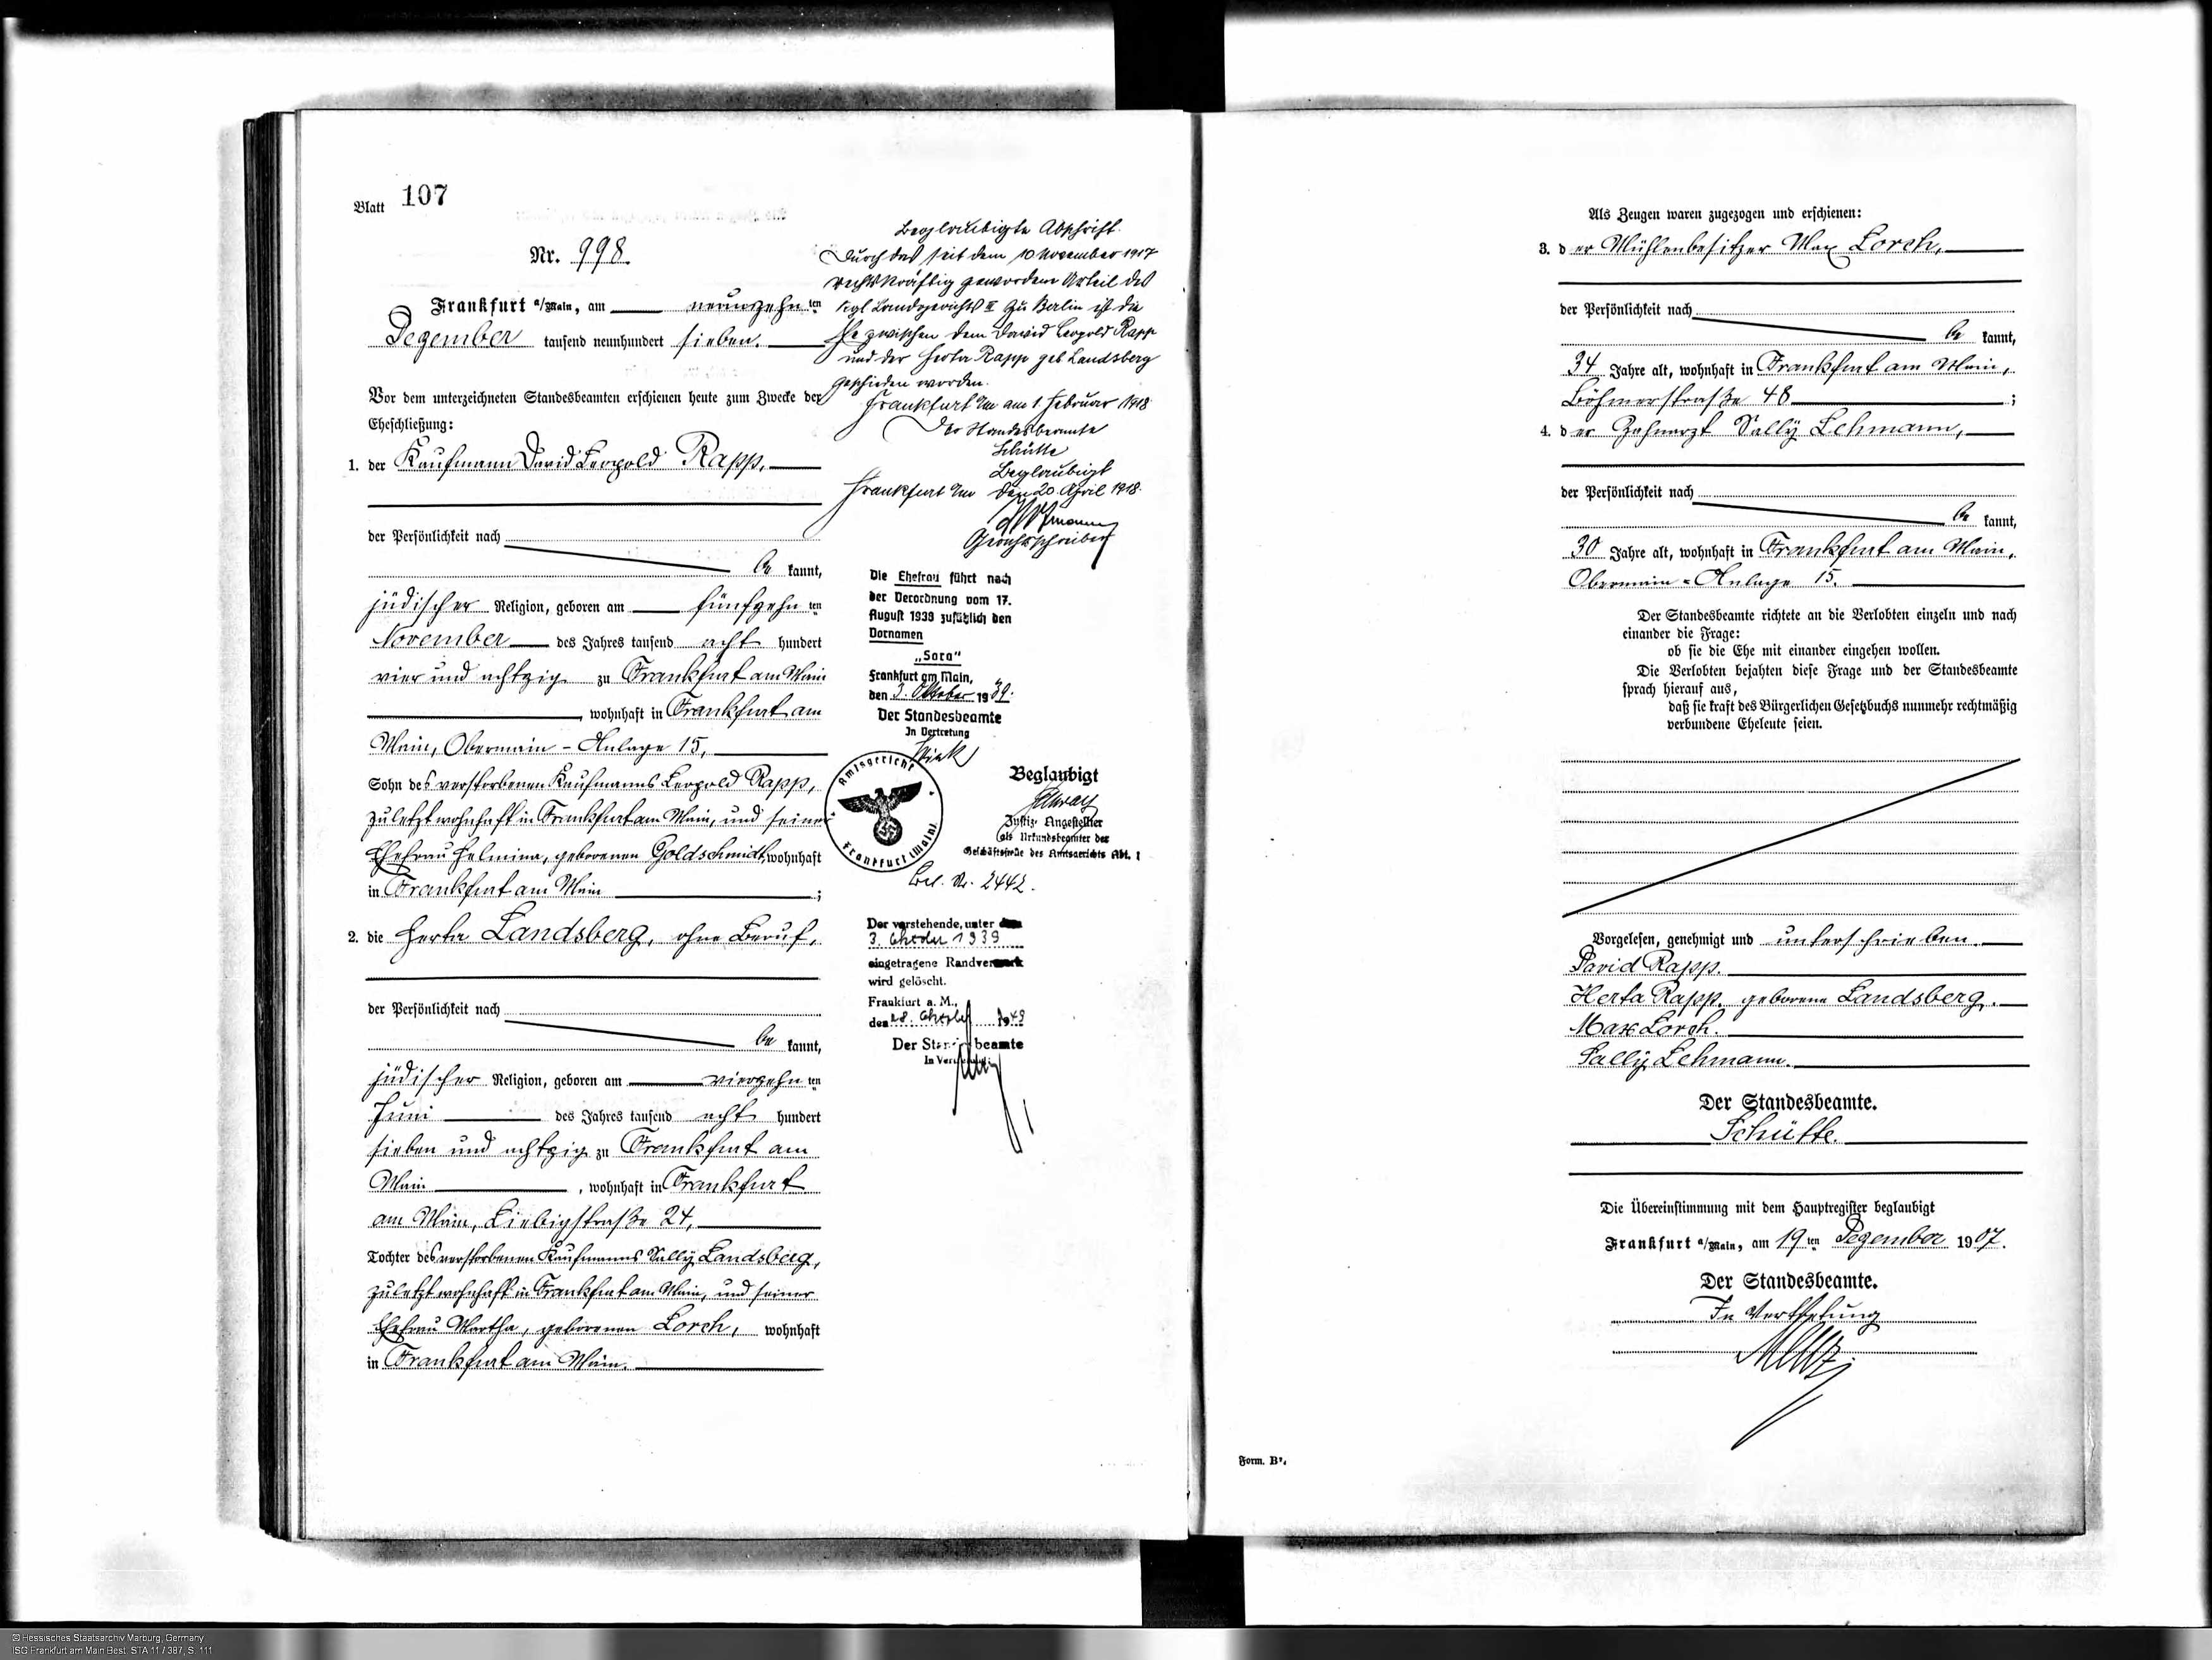 Blatt 107
Nr. 998.
Frankfurt a/Main, am neunzehnten
Dezember tausend neunhundert sieben.
Vor dem unterzeichneten Standesbeamten erschienen heute zum Zwecke der
Eheschließung:
1. der Kaufmann David Leopold Rapp,
der Persönlichkeit nach
be kannt,
jüdischer Religion, geboren am fünfzehnten
November des Jahres tausend acht hundert
vier und achtzig zu Frankfurt am Main
, wohnhaft in Frankfurt am
Main, Obermain-Anlage 15,
Sohn des verstorbenen Kaufmanns Leopold Rapp,
zuletzt wohnhaft in Frankfurt am Main, und seiner
Ehefrau Helmina, geborenen Goldschmidt, wohnhaft
in Frankfurt am Main ;
2. die Herta Landsberg, ohne Beruf,
der Persönlichkeit nach
be kannt,
jüdischer Religion, geboren am vierzehnten
Juni des Jahres tausend acht hundert
sieben und achtzig zu Frankfurt am
Main , wohnhaft in Frankfurt
am Main, Liebigstraße 24,
Tochter des verstorbenen Kaufmanns Sally Landsberg,
zuletzt wohnhaft in Frankfurt am Main, und seiner
Ehefrau Martha, geborenen Lorch, wohnhaft
in Frankfurt am Main.
Beglaubigte Abschrift.
Durch das seit dem 10 November 1917
rechtskräftig gewordene Urteil des
Kgl Landgerichts II zu Berlin ist die
Ehe zwischen dem David Leopold Rapp
und der Herta Rapp geb Landsberg
geschieden worden.
Frankfurt a/M am 1. Februar 1918
Der Standesbeamte
Schütte
Beglaubigt
Frankfurt a/M den 20. April 1918.
Gerichtsschreiber
Die Ehefrau führt nach
der Verordnung vom 17.
August 1938 zusätzlich den
Vornamen
„Sara"
Frankfurt am Main,
den 3. Oktober 1939.
Der Standesbeamte
In Vertretung
Amtsgericht
Frankfurt (Main)
Beglaubigt
Justiz-Angestellter
als Urkundsbeamter der
Geschäftsstelle des Amtsgerichts Abt. 1
Nr. 2442.
Der vorstehende, unter dem
3. Oktober 1939
eingetragene Randvermerk
wird gelöscht.
Frankfurt a. M.,
den 28. Oktober 1948
Der Standesbeamte
In Vertretung:
Als Zeugen waren zugezogen und erschienen:
3. der Mühlenbesitzer Max Lorch,
der Persönlichkeit nach
be kannt,
34 Jahre alt, wohnhaft in Frankfurt am Main,
Böhmerstraße 48 ;
4. der Zahnarzt Sally Lehmann,
der Persönlichkeit nach
be kannt,
30 Jahre alt, wohnhaft in Frankfurt am Main,
Obermain-Anlage 15.
Der Standesbeamte richtete an die Verlobten einzeln und nach
einander die Frage:
ob sie die Ehe mit einander eingehen wollen.
Die Verlobten bejahten diese Frage und der Standesbeamte
sprach hierauf aus,
daß sie kraft des Bürgerlichen Gesetzbuchs nunmehr rechtmäßig
verbundene Eheleute seien.
Vorgelesen, genehmigt und unterschrieben.
David Rapp.
Herta Rapp, geborene Landsberg.
Max Lorch.
Sally Lehmann.
Der Standesbeamte.
Schütte.
Die Übereinstimmung mit dem Hauptregister beglaubigt
Frankfurt a/Main, am 19ten Dezember 1907.
Der Standesbeamte.
In Vertretung
Form. B².
© Hessisches Staatsarchiv Marburg, Germany
ISG Frankfurt am Main Best. STA 11 / 387, S. 111